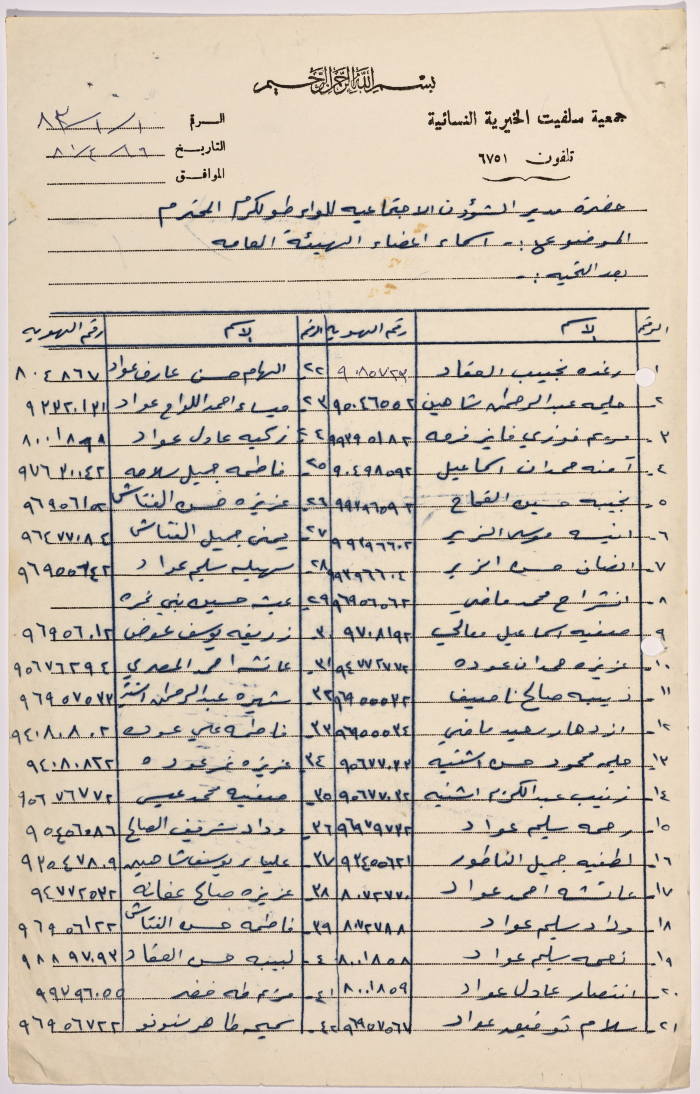 بسم الله الرحمن الرحيم
جمعية سلفيت الخيرية النسائية
تلفون ٦٧٥١
الرقم ٨٣/١/١
التاريخ
الموافق
حضرة مدير الشؤون الاجتماعيه للواء طولكرم المحترم
الموضوع :- اسماء اعضاء الهيئة العامه
بعد التحيه :-
الرقم الاسم رقم الهويه الرقم الاسم رقم الهويه
١- رغده نجيب العقاد ٩٠٨٥٧٢٣ ٢٢- الهام حسن عارف عواد ٨٠٤٨٦٧
٢- حليمه عبد الرحمن شاهين ٩٥٠٤٦٥٥٢ ٢٣- ميساء احمد عواد ٩٢٧٢٠١٢١
٣- مريم فوزي فايز ٩٩٢٩٥١٨٢ ٢٤- زكيه عادل عواد ٨٠٠١٨٩٨
٤- آمنه حمدان اسماعيل ٩٠٤٩٨٥٩٢ ٢٥- فاطمه جميل سلامه ٩٧٦٢٠٠٤٢
٥- نجيبه حسين القماح ٢٦- عزيزه حسن النتاش
٦- انيسه موسى الزير ٩٩٢٩٦٦٠٢ ٢٧- يمنى جميل النتاش ٩٦٤٧٧٠٨٤
٧- حسن الزير ٩٩٢٩٦٦٠٤ ٢٨- سهيله سليم عواد ٩٦٩٥٥٦٤٢
٨- انشراح محمد ماضي ٩٦٩٥٦٥٦٢ ٢٩- حسين بني نمره
٩- صفيه اسماعيل معالي ٩٧٠٨١٩٢ ٣٠- زريفه يوسف عوض ٩٦٩٥٦٠١٢
١٠- عزيزه حمدان عوده ٩٤٧٧٢٧٧٢ ٣١- عائشه احمد المصري ٩٥٦٧٦٢٩٤
١١- ذيبه صالح ناصيف ٩٦٩٥٥٥٢٢ ٣٢- شهيره عبد الرحمن ٩٦٩٥٧٥٢٢
١٢- ازدهار سعيد ماضي ٩٦٩٥٥٥٢٤ ٣٣- فاطمه علي عوده ٩٤٠٨٠٨٠٢
١٣- حليمه محمود حسن اشتيه ٩٥٦٧٧٠٢٢ ٣٤- عزيزه نمر عوده ٩٤٠٨٠٨٢٢
١٤- زينب عبد الكريم اشتيه ٩٥٦٧٧٠٢٢ ٣٥- صفيه محمد عيسى ٩٥٦٧٦٧٧٢
١٥- رحمه سليم عواد ٩٦٩٧٩٧٢٢ ٣٦- وداد شريف الصالح ٩٥٤٥٦٠٨٦
١٦- لطفيه جميل الناطور ٩٢٤٥٥٦٢١ ٣٧- علياء يوسف شاهين ٩٢٥٤٧٨٠٩
١٧- عائشه احمد عواد ٨٠٧٢٧٧٠ ٣٨- عزيزه صالح عفانه ٩٤٧٧٢٥٢٢
١٨- وداد سليم عواد ٨٠٧٢٧٨٨ ٣٩- فاطمه حسن النتاش ٩٦٩٥٦١٢٢
١٩- نعمه سليم عواد ٨٠٠١٨٥٨ ٤٠- لبيبه حسن العقاد ٩٨٨٩٧٠٩٢
٢٠- انتصار عادل عواد ٨٠٠١٨٥٩ ٤١- مريم طه خضر ٩٩٢٩٦٠٥٥
٢١- سلام توفيق عواد ٩٦٩٥٧٥٦٧ ٤٢- سميحه طاهر شونو ٩٦٩٥٦٧٢٢